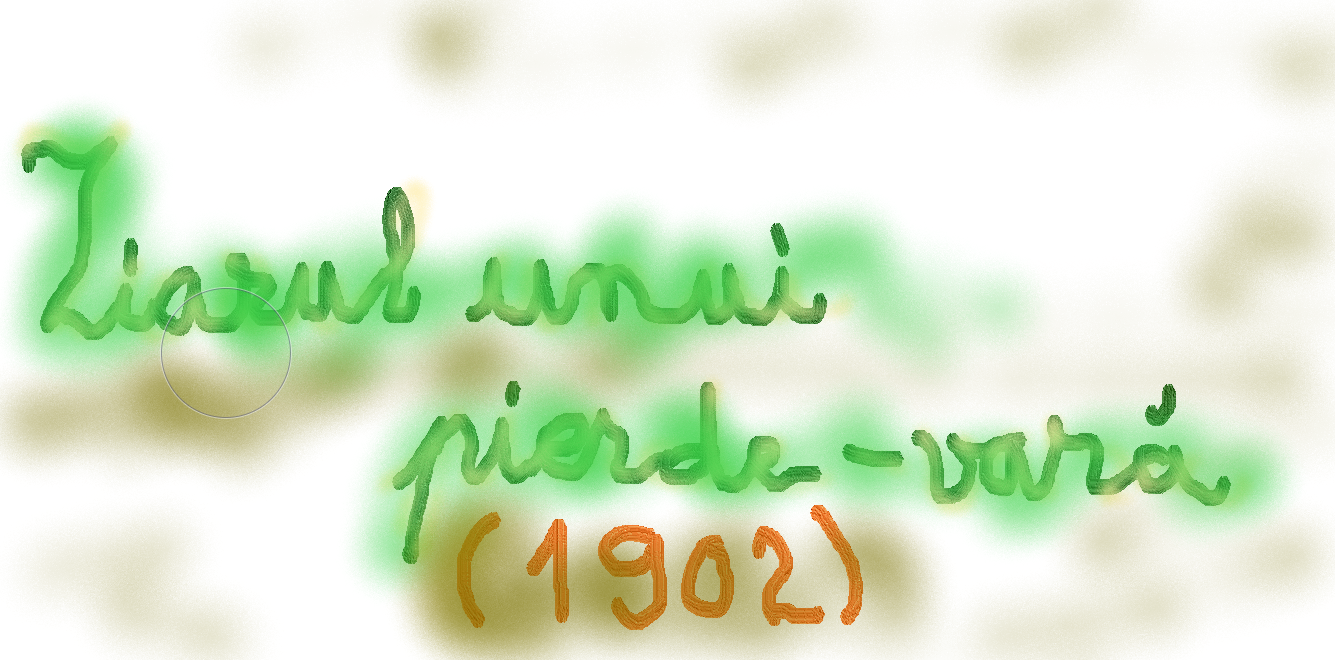 Ziarul unui
pierde-vară
(1902)